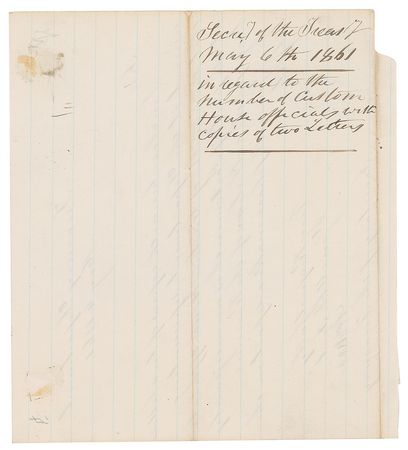 Secrety of the Treasy
May 6th 1861
in regard to the
Number of Custom
House officials with
copies of two Letters